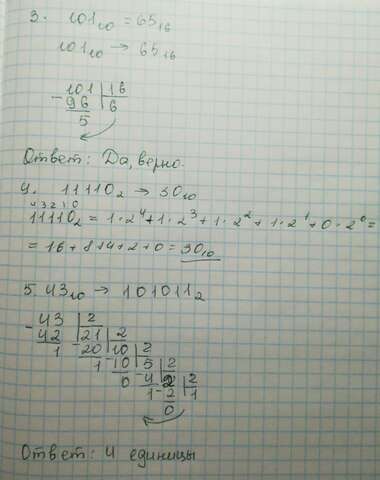 3. 101₁₀ = 65₁₆
101₁₀ → 65₁₆
- 101 | 16
96 | 6
5
Ответ: Да, верно.
4. 11110₂ → 30₁₀
4 3 2 1 0
11110₂ = 1·2⁴+1·2³+1·2²+1·2¹+0·2⁰=
= 16+8+4+2+0=30₁₀
5. 43₁₀ → 101011₂
- 43 | 2
42 | 21 | 2
1 - 20 | 10 | 2
1 - 10 | 5 | 2
0 - 4 | 2 | 2
1 - 2 | 1
0
Ответ: 4 единицы